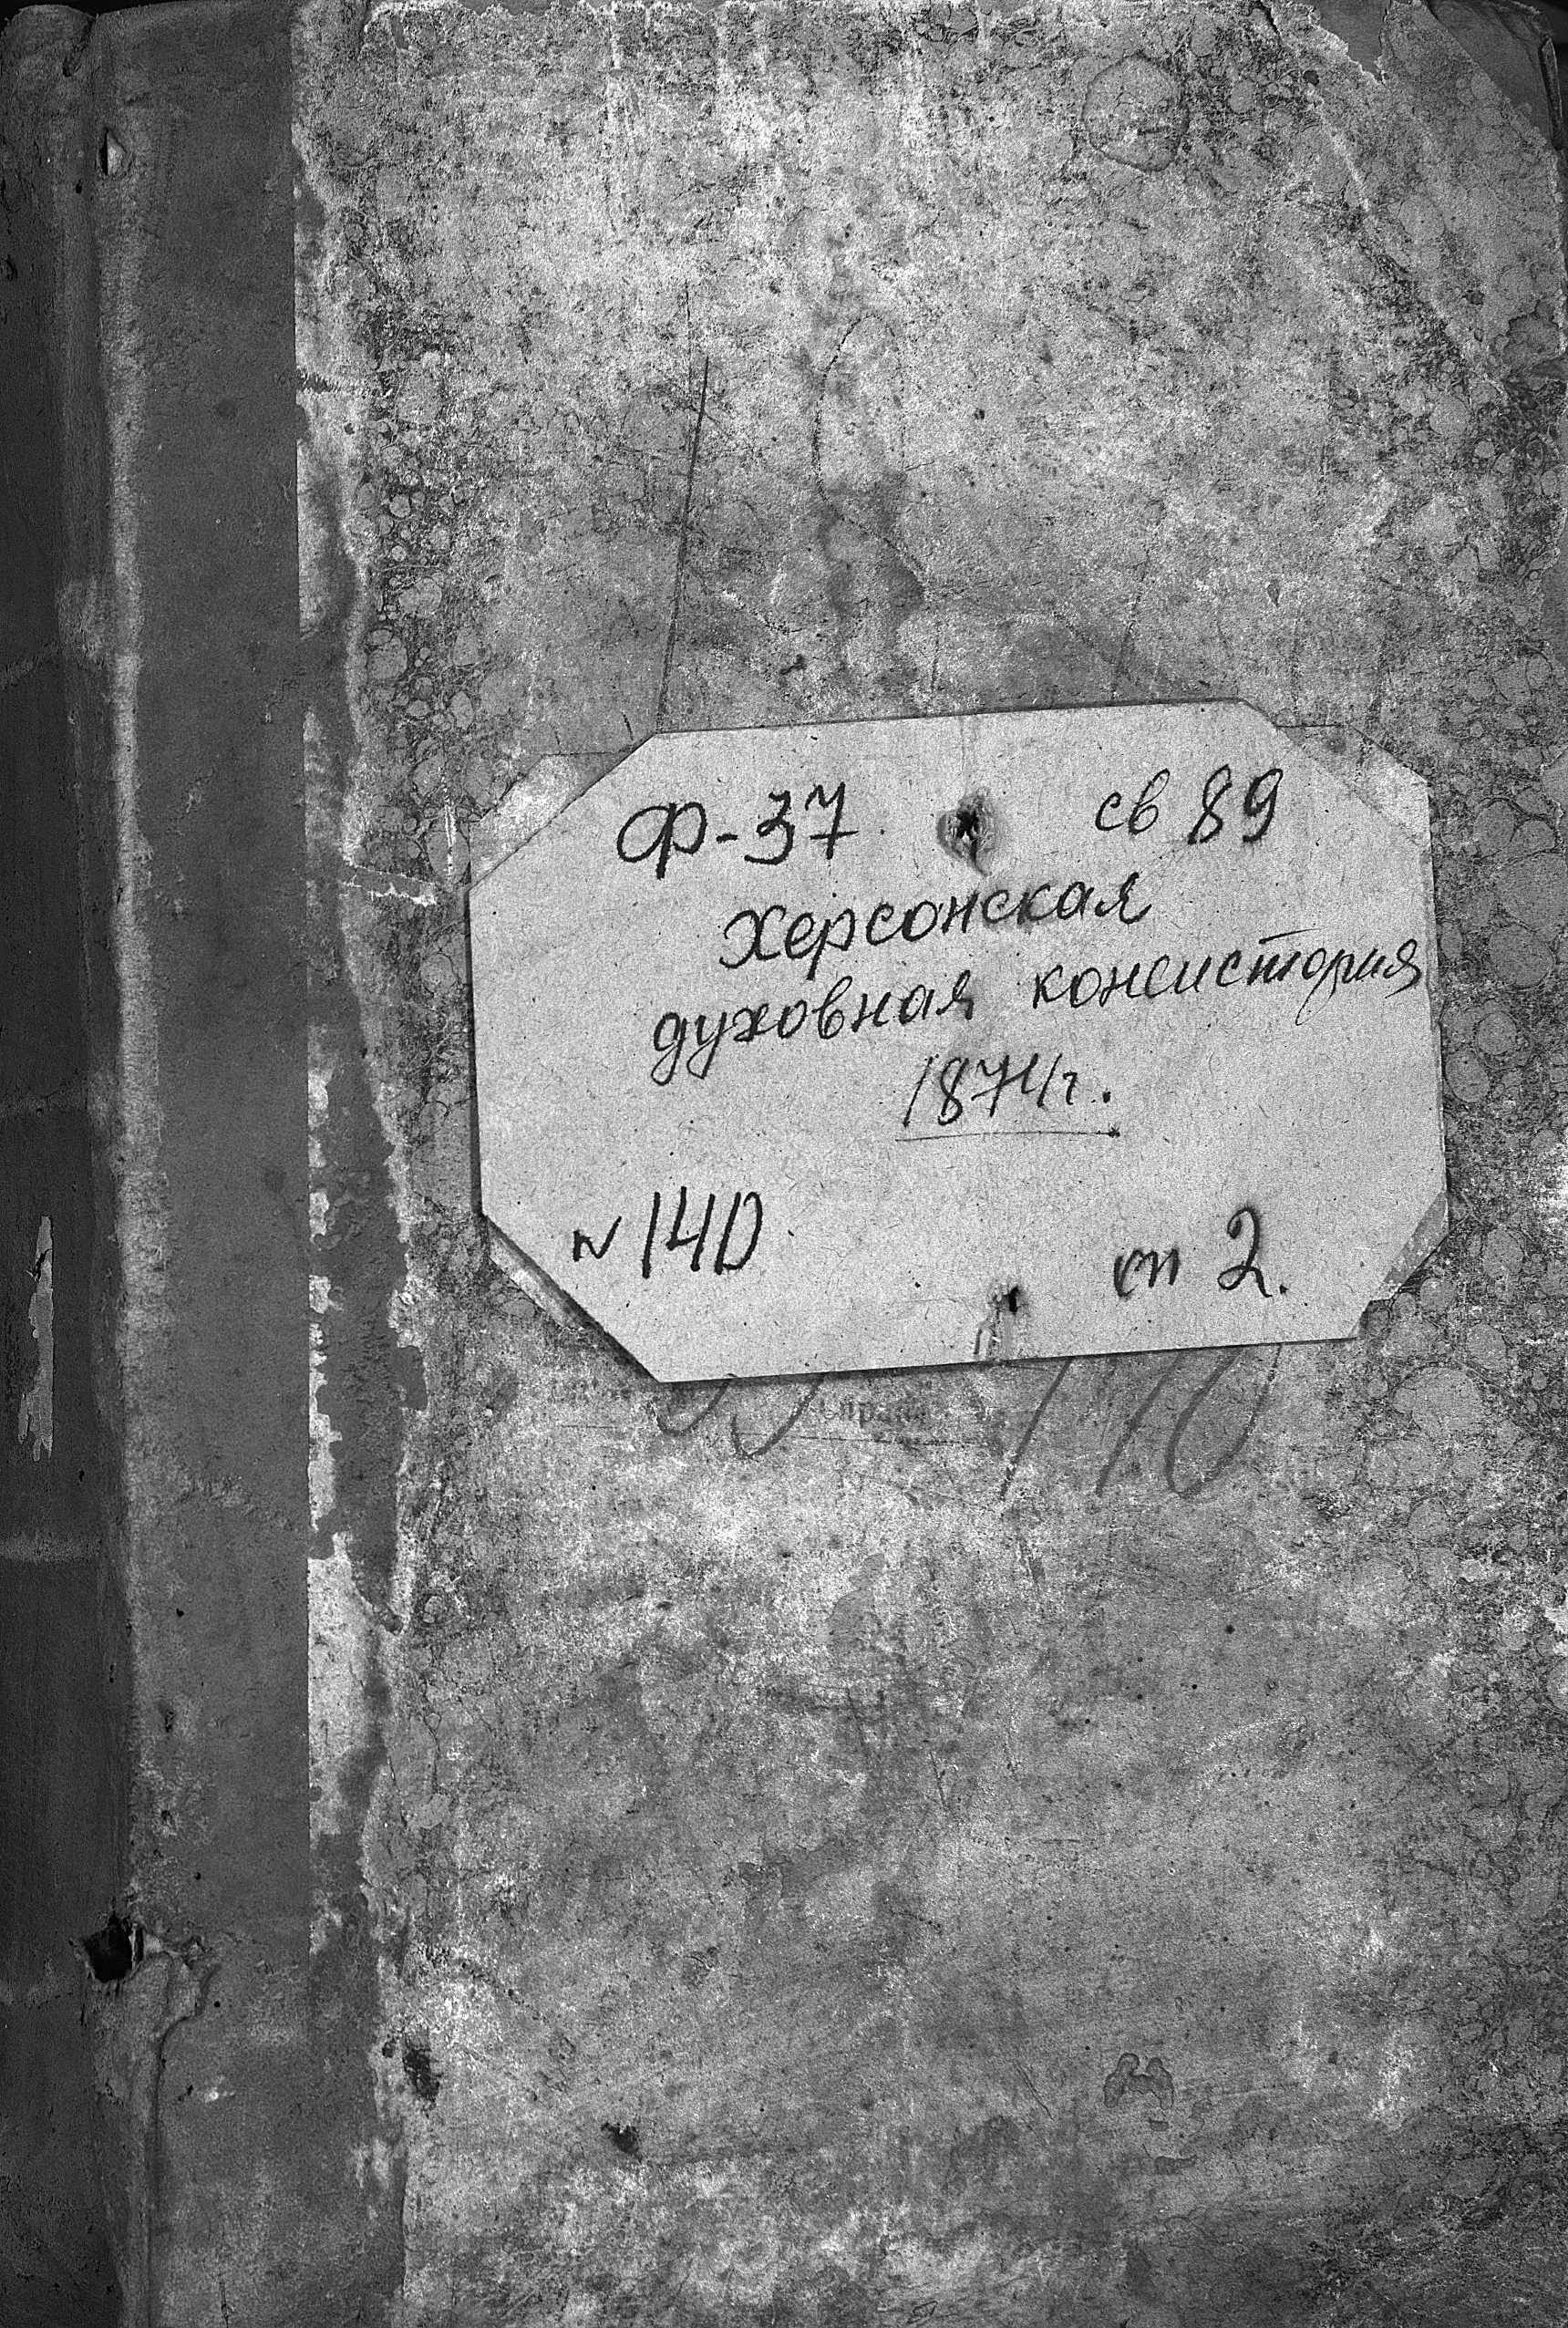 Ф-37 св 89
Херсонская
духовная консистория
1874г.
№ 140
оп 2.